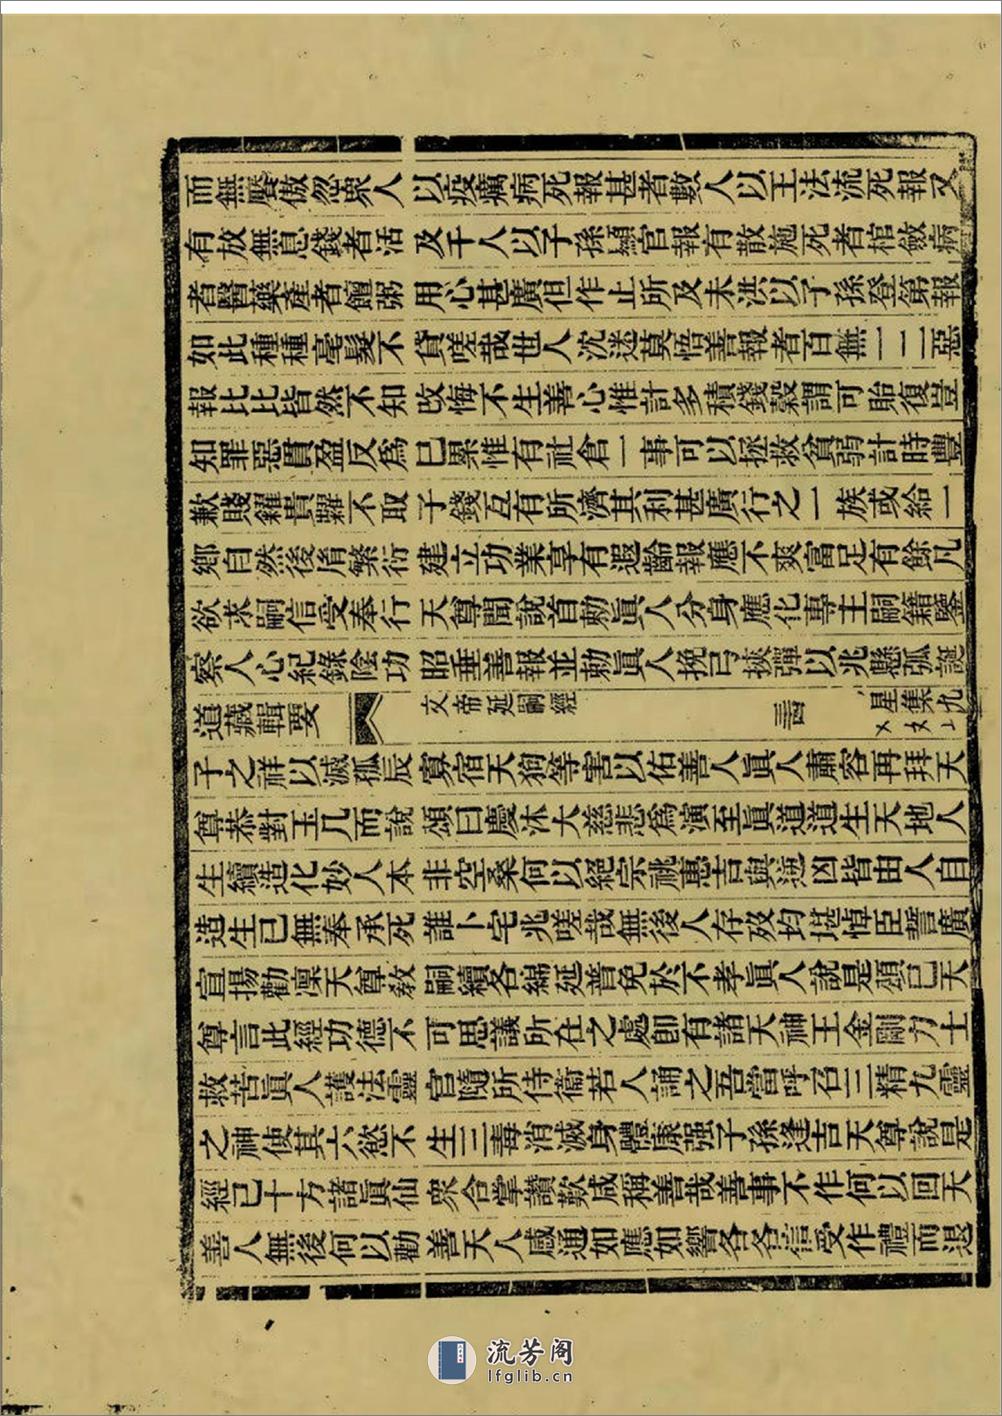 而無饜傲忽眾人以疫癘病死報甚者數人以王法流死報又
有放無息錢者活及千人以子孫顯官報有散施死者棺斂病
者醫藥產者饘粥用心甚廣但作止所及未洪以子孫登第報
如此種種毫髮不貸嗟哉世人沈迷莫悟善報者百無一二惡
報比比皆然不知改悔不生善心惟計多積錢穀謂可貽復豈
知罪惡貫盈反爲已累惟有社倉一事可以拯救貧弱計時豐
歉賤糴貴糶不取子錢互有所濟其利甚廣行之一族或給一
鄉自然後胤繁衍建立功業享有遐齡報應不爽富足有餘凡
欲求嗣信受奉行天尊聞說首勅眞人分身應化專主嗣籍鑒
察人心紀錄陰功昭垂善報並勅眞人挽弓挾彈以兆懸弧誕
道藏輯要 文帝延嗣經 星集九
子之祥以滅孤辰寡宿天狗等害以佑善人眞人肅容再拜天
尊恭對玉几而說頌曰慶沐大慈悲爲演至眞道道生天地人
生續造化妙人本非空桑何以絕宗祧惠吉與逆凶皆由人自
造生已無奉承死誰卜宅兆嗟哉無後人存歿均堪悼臣誓廣
宣揚勸凜天尊敎嗣續各綿延普免於不孝眞人說是頌已天
尊言此經功德不可思議所在之處卽有諸天神王金剛力士
救苦眞人護法靈官隨所侍衞若人誦之吾當呼召三精九靈
之神使其六慾不生三毒消滅身體康强子孫逢吉天尊說是
經已十方諸眞仙衆合掌讚歎咸稱善哉善事不作何以回天
善人無後何以勸善天人感通如應如響各各信受作禮而退
流芳阁
lfglib.cn